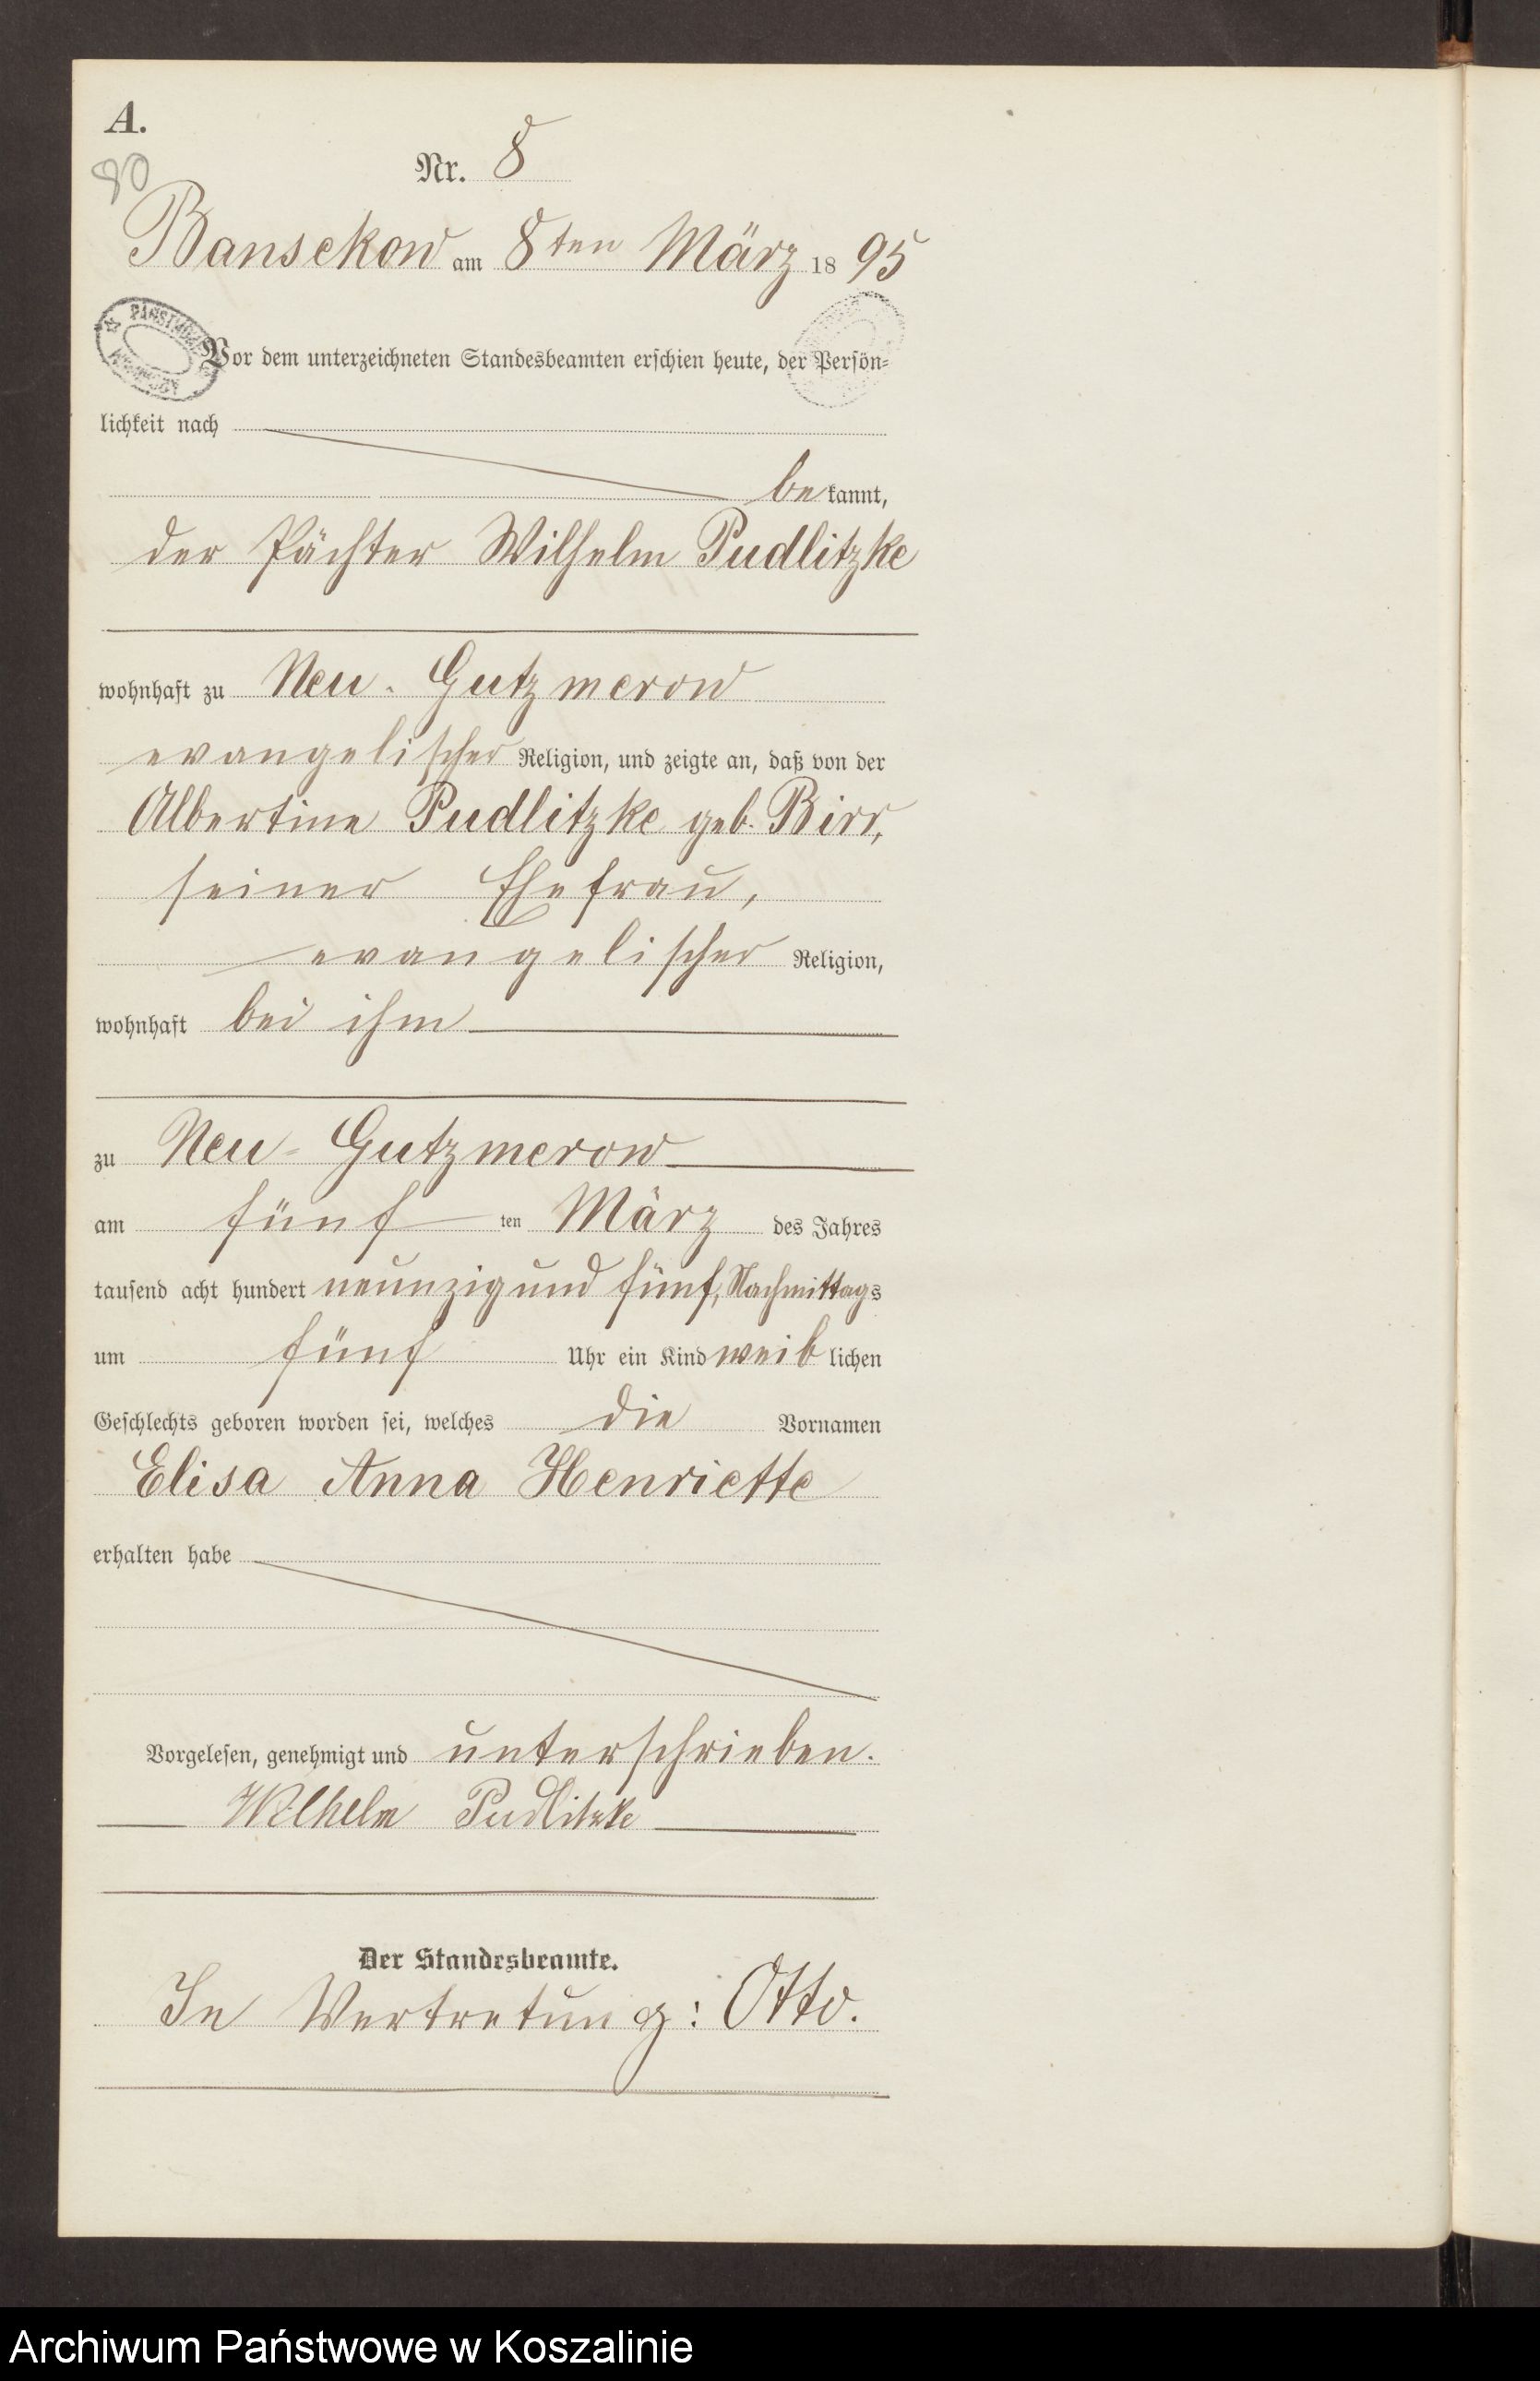 A.
80
Nr. 8
Bansekow am 8ten März 1895
Vor dem unterzeichneten Standesbeamten erschien heute, der Persön-
lichkeit nach
bekannt,
der Pächter Wilhelm Pudlitzke
wohnhaft zu Neu-Gutzmerow
evangelischer Religion, und zeigte an, daß von der
Albertine Pudlitzke geb. Birr,
seiner Ehefrau,
evangelischer Religion,
wohnhaft bei ihm
zu Neu-Gutzmerow
am fünften März des Jahres
tausend acht hundert neunzig und fünf, Nachmittags
um fünf Uhr ein Kind weiblichen
Geschlechts geboren worden sei, welches die Vornamen
Elisa Anna Henriette
erhalten habe
Vorgelesen, genehmigt und unterschrieben.
Wilhelm Pudlitzke
Der Standesbeamte.
In Vertretung: Otto.
Archiwum Państwowe w Koszalinie